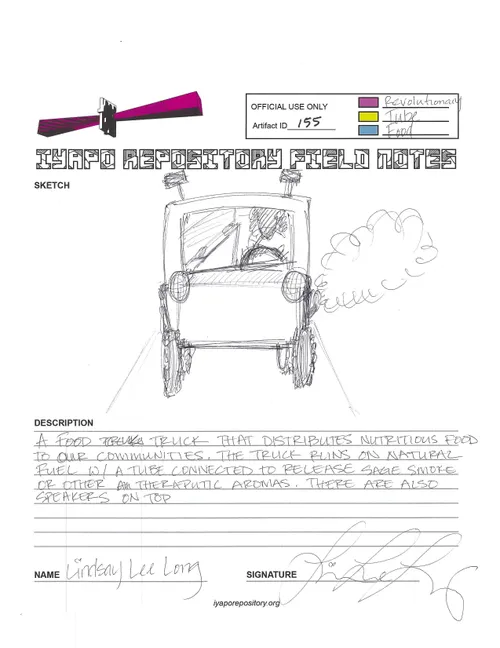 OFFICIAL USE ONLY
Artifact ID 155
Revolutionary
Tube
Food
IYAPO REPOSITORY FIELD NOTES
SKETCH
DESCRIPTION
A FOOD TRUCK THAT DISTRIBUTES NUTRITIOUS FOOD
TO OUR COMMUNITIES. THE TRUCK RUNS ON NATURAL
FUEL W/ A TUBE CONNECTED TO RELEASE SAGE SMOKE
OR OTHER THERAPUTIC AROMAS. THERE ARE ALSO
SPEAKERS ON TOP
NAME Lindsay Lee Long
SIGNATURE
iyaporepository.org